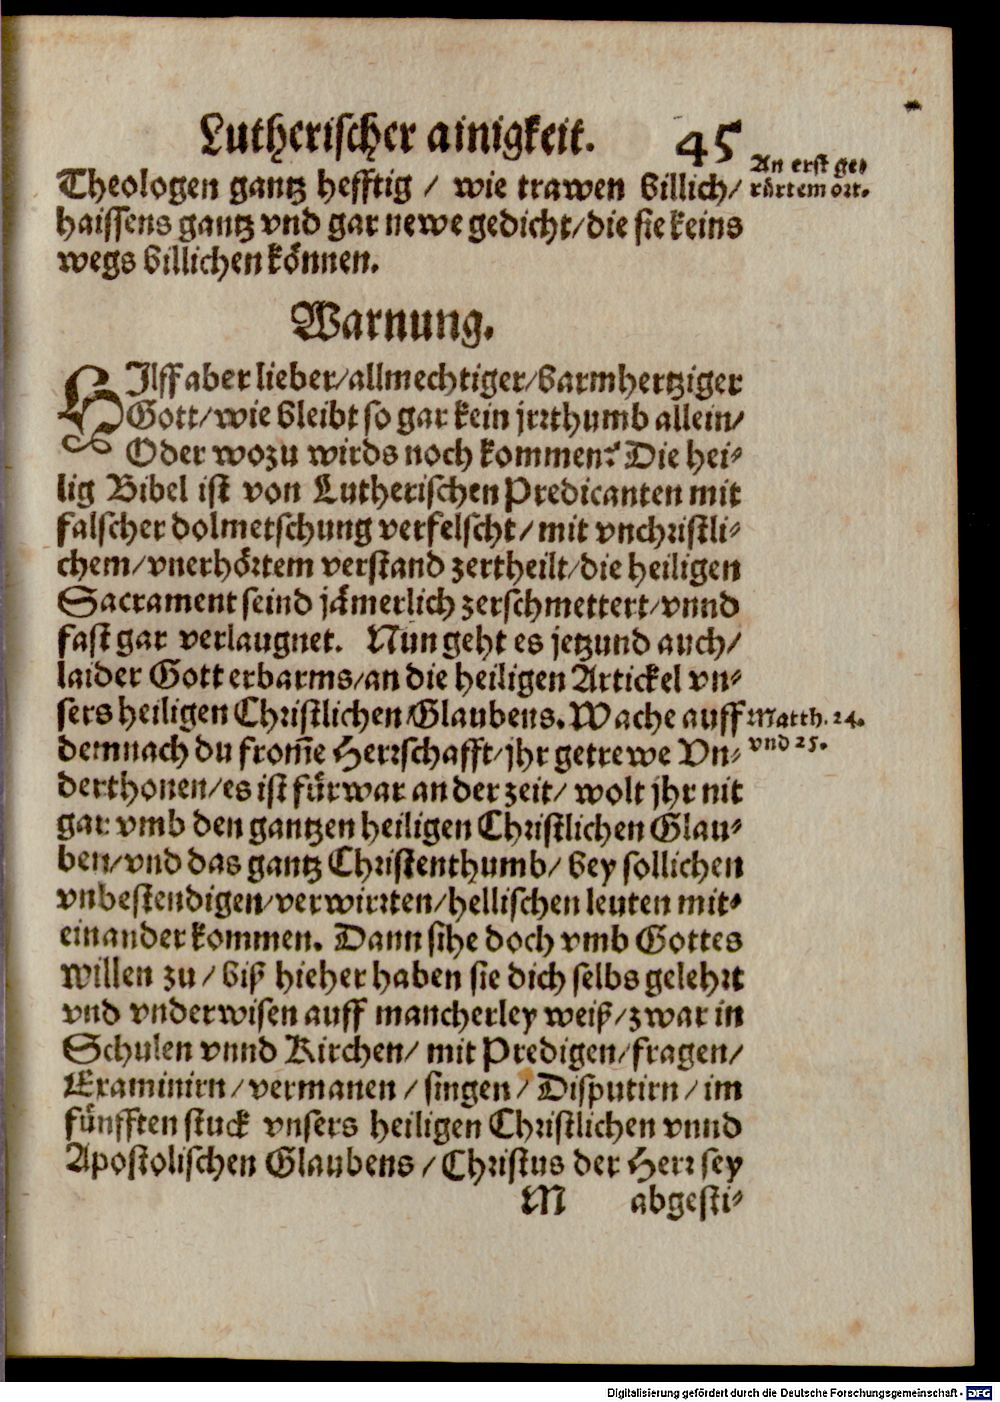 Lutherischer ainigkeit. 45
Theologen gantz hefftig / wie trawen billich/
An erst ge-
rürtem ort.
haissens gantz vnd gar newe gedicht/die sie keins
wegs billichen können.
Warnung.
HIlff aber lieber/allmechtiger/barmhertziger
Gott/wie bleibt so gar kein jrrthumb allein/
Oder wozu wirds noch kommen? Die hei-
lig Bibel ist von Lutherischen Predicanten mit
falscher dolmetschung verfelscht/mit vnchristli-
chem/vnerhörtem verstand zertheilt/die heiligen
Sacrament seind jämerlich zerschmettert/vnnd
fast gar verlaugnet. Nun geht es jetzund auch/
laider Gott erbarms/an die heiligen Artickel vn-
sers heiligen Christlichen/Glaubens. Wache auff
Matth. 24.
vnd 25.
demnach du from̄e Herrschafft/jhr getrewe Vn-
derthonen/es ist fürwar an der zeit/ wolt jhr nit
gar vmb den gantzen heiligen Christlichen Glau-
ben/vnd das gantz Christenthumb/ bey sollichen
vnbestendigen/verwirrten/hellischen leuten mit-
einander kommen. Dann sihe doch vmb Gottes
willen zu / biß hieher haben sie dich selbs gelehrt
vnd vnderwisen auff mancherley weiß/zwar in
Schulen vnnd Kirchen/ mit Predigen/fragen/
Examinirn/vermanen / singen / Disputirn / im
fünfften stuck vnsers heiligen Christlichen vnnd
Apostolischen Glaubens / Christus der Herr sey
M abgesti-
Digitalisierung gefördert durch die Deutsche Forschungsgemeinschaft - DFG